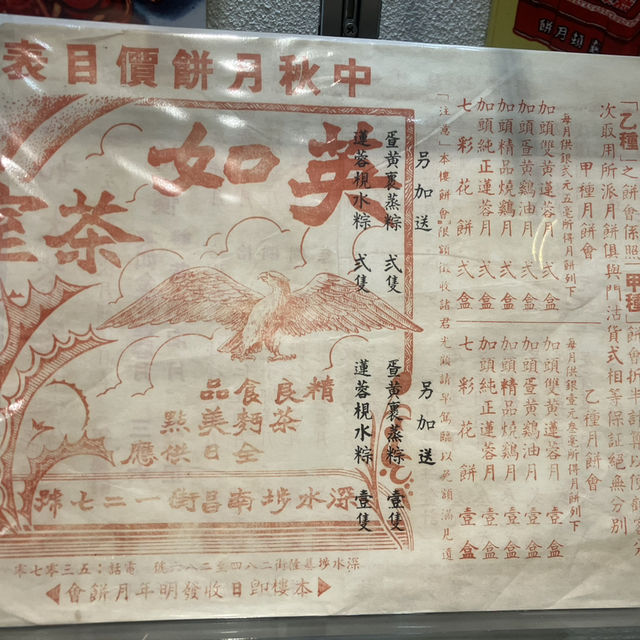 中秋月餅價目表
英如
茶室
精良食品
茶麵美點
全日供應
深水埗南昌街一二七號
深水埗基隆街二八四至二八六號 電話:五三零七零
本樓即日收發明年月餅會
「乙種」之餅會係照「甲種」餅會折半計
次取用所派月餅俱與門沽貨式相等保証絕無分別
甲種月餅會
每月供銀弍元五毫所得月餅列下
加頭雙黃蓮蓉月 弍盒
加頭蛋黃鷄油月 弍盒
加頭精品燒鷄月 弍盒
加頭純正蓮蓉月 弍盒
七彩花餅 弍盒
乙種月餅會
每月供銀壹元叁毫所得月餅列下
加頭雙黃蓮蓉月 壹盒
加頭蛋黃鷄油月 壹盒
加頭精品燒鷄月 壹盒
加頭純正蓮蓉月 壹盒
七彩花餅 壹盒
「注意」本樓餅會限額徵收諸君光顧請早駕臨以免額滿見遺
另加送
蛋黃裹蒸粽 弍隻
蓮蓉梘水粽 弍隻
另加送
蛋黃裹蒸粽 壹隻
蓮蓉梘水粽 壹隻